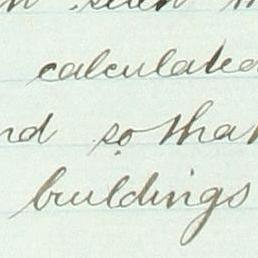 calculated
so that
buildings